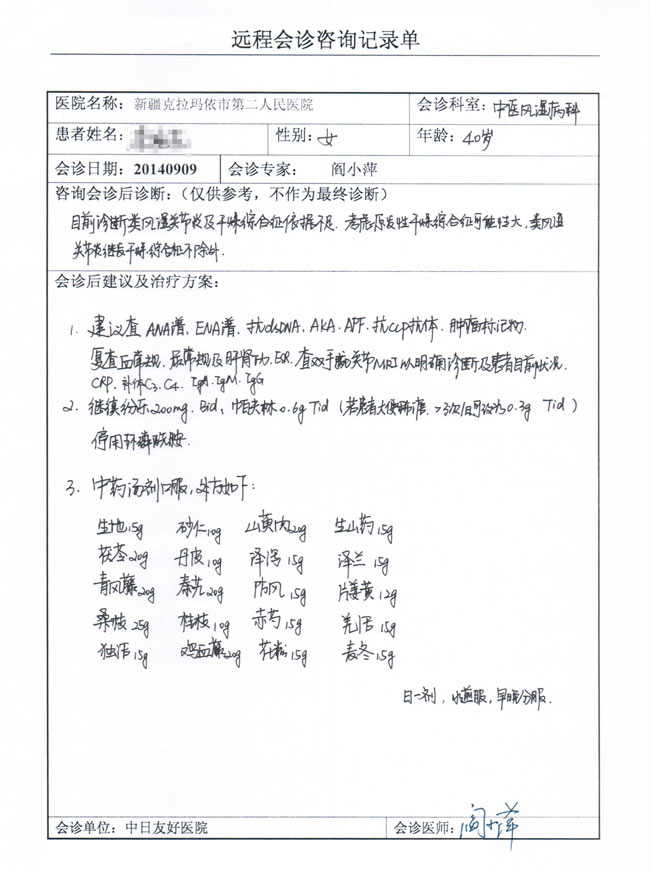 远程会诊咨询记录单
医院名称：新疆克拉玛依市第二人民医院 会诊科室：中医风湿病科
患者姓名： 性别：女 年龄：40岁
会诊日期：20140909 会诊专家： 阎小萍
咨询会诊后诊断：（仅供参考，不作为最终诊断）
目前诊断类风湿关节炎及干燥综合征依据不足．考虑原发性干燥综合征可能性大，类风湿
关节炎继发干燥综合征不除外．
会诊后建议及治疗方案：
1．建议查 ANA谱、ENA谱、抗dsDNA、AKA、APF、抗CCP抗体、肿瘤标记物．
复查血常规、尿常规及肝肾功、ESR、查双手腕关节MRI以明确诊断及患者目前状况．
CRP、补体C3、C4、IgA、IgM、IgG
2．继续纷乐200mg．Bid、帕夫林0.6g Tid（若患者大便稀溏，>3次/日可改为0.3g Tid）
停用环磷酰胺．
3．中药汤剂口服，处方如下：
生地15g 砂仁10g 山萸肉20g 生山药15g
茯苓20g 丹皮10g 泽泻15g 泽兰15g
青风藤20g 秦艽20g 防风15g 片姜黄12g
桑枝25g 桂枝10g 赤芍15g 羌活15g
独活15g 鸡血藤20g 花粉15g 麦冬15g
日一剂，水煎服，早晚分服．
会诊单位：中日友好医院 会诊医师：阎小萍